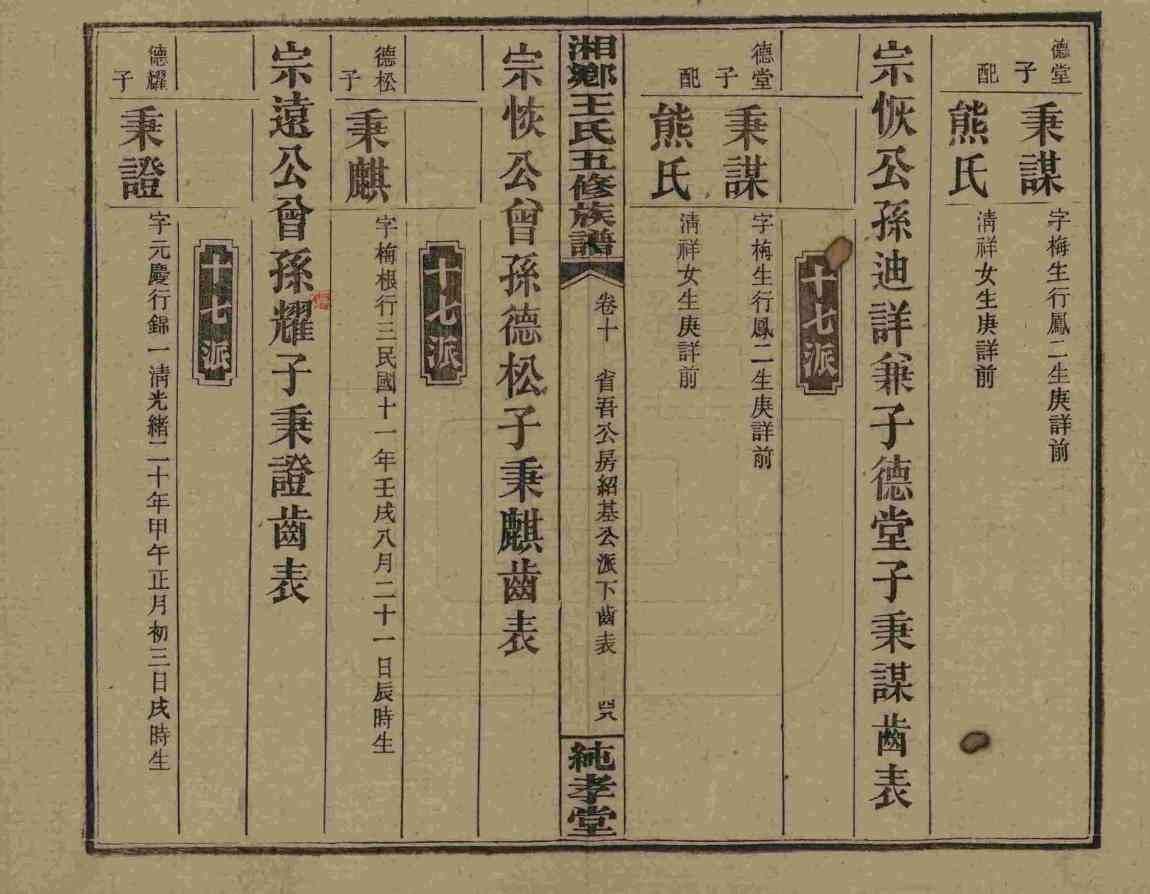 德堂子
秉謀
字梅生行鳳二生庚詳前
配
熊氏
清祥女生庚詳前
宗恢公孫迪詳兼子德堂子秉謀齒表
十七派
德堂子
秉謀
字梅生行鳳二生庚詳前
配
熊氏
清祥女生庚詳前
湘鄉王氏五修族譜
卷十
省吾公房紹基公派下齒表
四八
純孝堂
宗恢公曾孫德松子秉麒齒表
十七派
德松子
秉麒
字楠根行三民國十一年壬戌八月二十一日辰時生
宗遠公曾孫耀子秉證齒表
十七派
德耀子
秉證
字元慶行錦一清光緒二十年甲午正月初三日戌時生